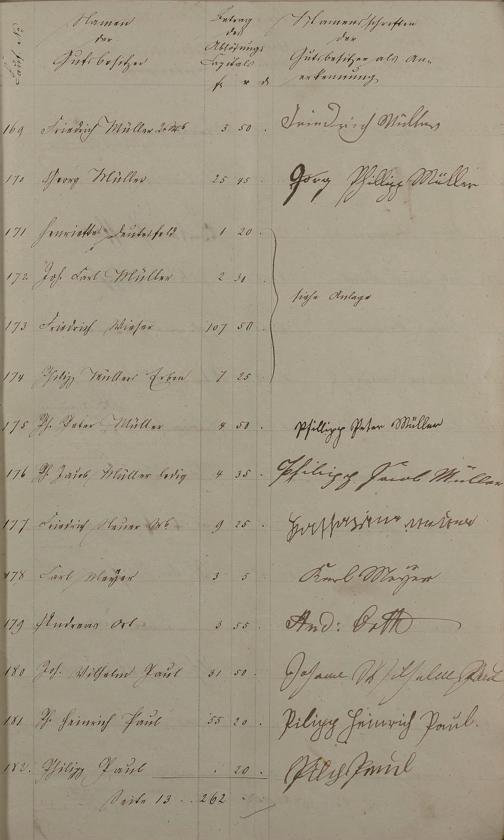 Lauf. No
Namen
der
Gutsbesitzer
Betrag
des
Ablösungs
Capitals
f x d
Namensschriften
der
Gutsbesitzer als An-
erkennung
169 Friedrich Müller 3 50 . Friedrich Müller
170 Georg Müller 25 45 . Georg Phillipp Müller
171 Henriette 1 20 .
172 Joh. Carl Müller 2 31 .
siehe Anlage
173 Friedrich Wieser 107 50 .
174 Philipp Müllers Erben 7 25 .
175 Ph. Peter Müller 4 50 . Phillipp Peter Müller
176 Ph Jacob Müller ledig 4 35 . Philipp Jacob Müller
177 Friedrich 9 25 .
178 Carl Meyer 3 5 Karl Meyer
179 Andreas Ort 3 55 And: Orth
180 Joh. Wilhelm Paul 31 50 . Johann Wilhelm Paul
181 Ph. Heinrich Paul 55 20 . Pilipp Heinrich Paul.
182. Philipp Paul . 20 . Paul
Seite 13 . . 262